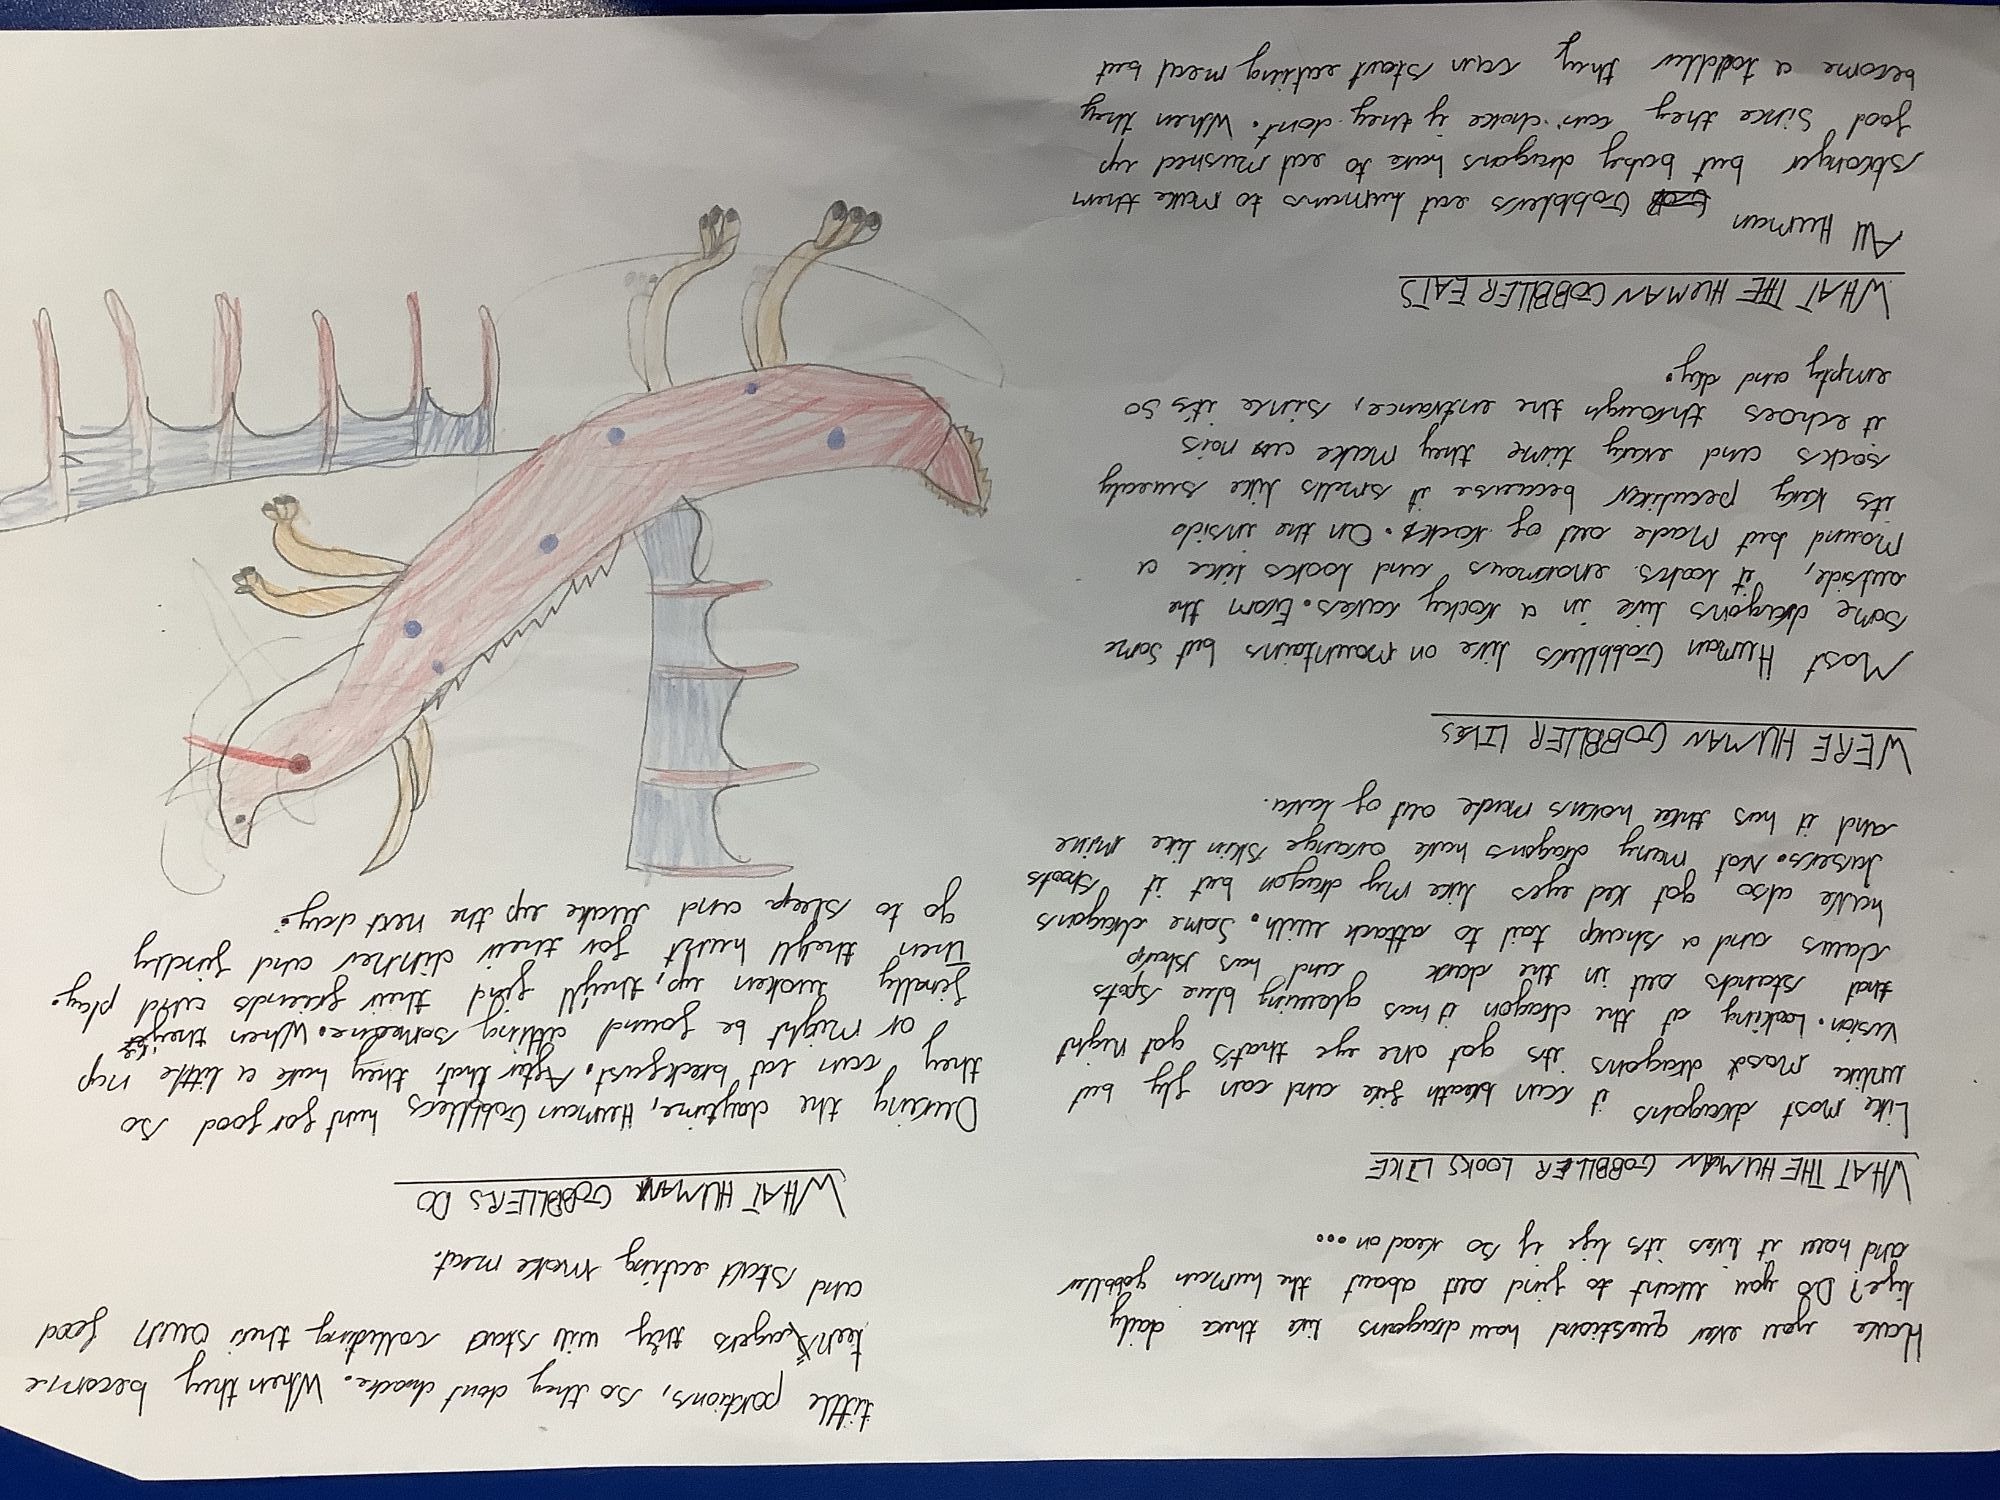 Have you ever questiond how dragons live there daily
life? Do you want to find out about the human gobbler
and how it lives it's life if so read on...
WHAT THE HUMAN GOBBLLER LOOKS LIKE
Like most dragons it can breath fire and can fly but
unlike most dragons its got one eye that's got night
vision. Looking at the dragon it has glowing blue spots
that stands out in the dark and has sharp
claws and a sharp tail to attack with. Some dragons
have also got red eyes like my dragon but it shoots
lasers. Not many dragons have orange skin like mine
and it has three horns made out of lava.
WERE HUMAN GOBBLLER LIVES
Most Human Gobblers live on mountains but some
some dragons live in a rocky caves. From the
outside, it looks enormous and looks like a
Mound but Made out of rocks. On the inside
its very peculiar because it smells like sweaty
socks and every time they make a nois
it echoes through the entrance, since it's so
empty and dry.
WHAT THE HUMAN GOBBLLER EATS
All Human Gobblers eat humans to make them
stronger but baby dragons have to eat mushed up
food since they can choke if they dont. When they
become a toddler they can start eating meat but
little portions, so they dont choke. When they become
teenagers they will start colliding their own food
and start eating moke meat.
WHAT HUMAN GOBBLLERS DO
During the daytime, Human Gobblers hunt for food so
they can eat breakfast. After that, they have a little nap
or might be found atting somedine. When they're
finally woken up, they'll find their friends and play.
Then they'll hunt for their dinner and finally
go to sleep and wake up the next day.